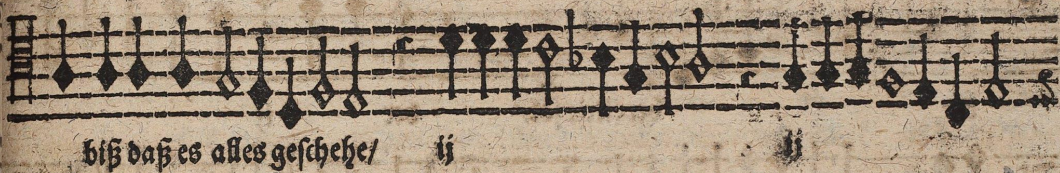 biß daß es alles geschehe/ ij ij